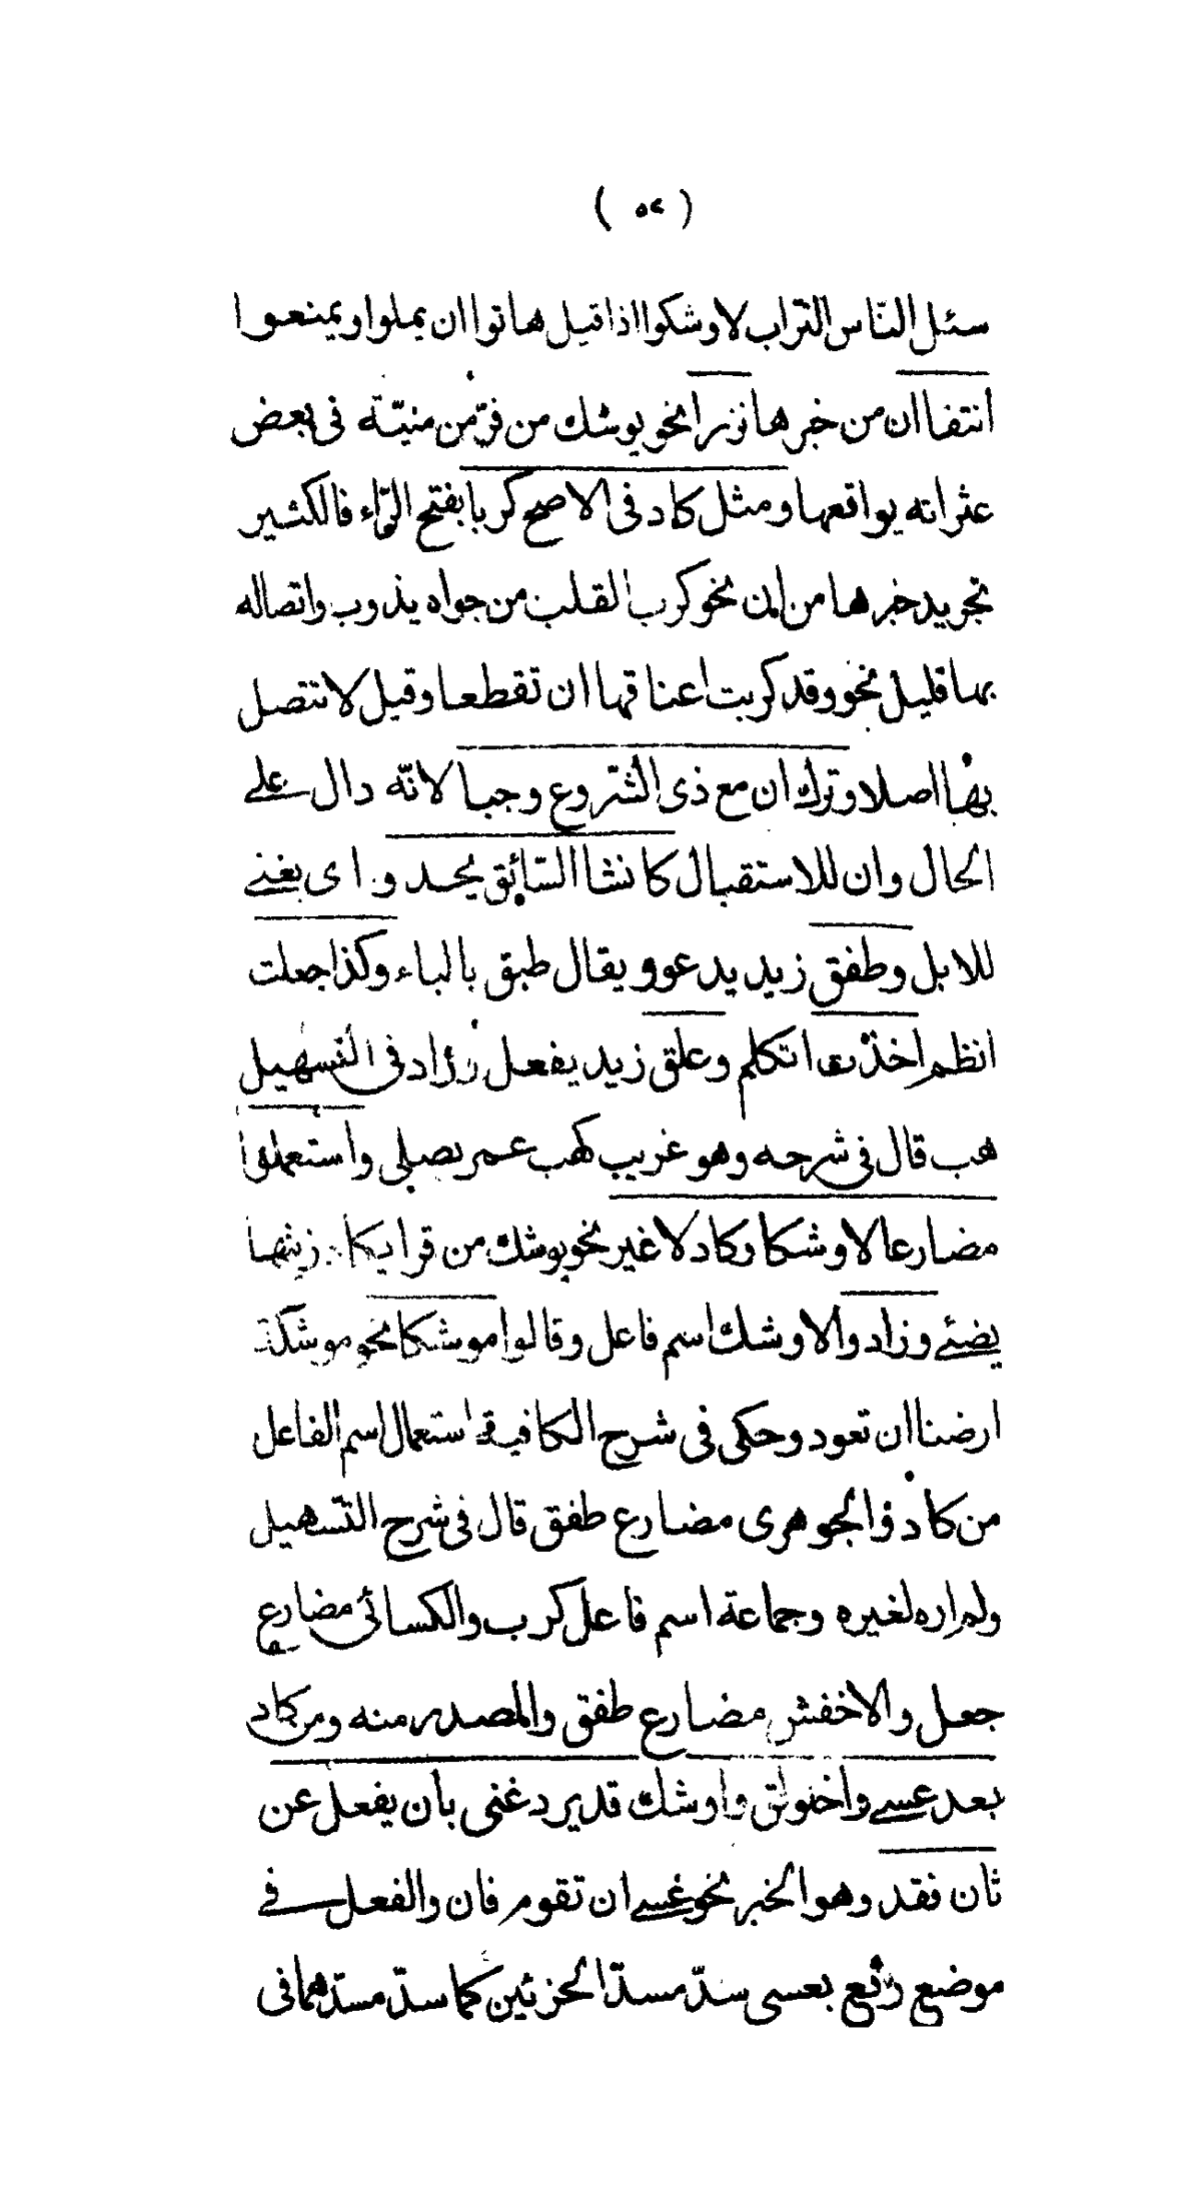 ( ٥٢ )
سئل النّاس التراب لاوشكوا اذا قيل هاتوا ان يملوا ويمنعوا
انتفا ان من خبرها نزرا نحو يوشك من فرّ من منيّته فى بعض
عثراته يواقعها ومثل كاد فى الاصح كربا بفتح الرّاء فالكثير
تجريد خبرها من ان نحو كرب القلب من جواه يذوب واتصاله
بها قليل نحو وقد كربت اعناقها ان تقطعا وقيل لا تتصل
بها اصلا وترك ان مع ذى الشّروع وجبا لانّه دال على
الحال وان للاستقبال كانشا السّائق يحدو اى يغنى
للابل وطفق زيد يدعو ويقال طبق بالباء وكذا جعلت
انظم اخذت اتكلم وعلق زيد يفعل وزاد فى التّسهيل
هب قال فى شرحه وهو غريب كهب عمر يصلى واستعملوا
مضارعا لاوشكا وكاد لا غير نحو يوشك من فر ا يكاد زيتها
يضئ وزادوا لاوشك اسم فاعل وقالوا موشكا نحو موشكة
ارضنا ان تعود وحكى فى شرح الكافية استعمال اسم الفاعل
من كاد والجوهرى مضارع طفق قال فى شرح التّسهيل
ولم اره لغيره وجماعة اسم فاعل كرب والكسائى مضارع
جعل والاخفش مضارع طفق والمصدر منه ومن كاد
بعد عسى واخلولق واوشك قد يرد غنى بان يفعل عن
ثان فقد وهو الخبر نحو عسى ان تقوم فان والفعل فى
موضع رفع بعسى سدّ مسدّ الجزئين كما سدّ مسدّهما فى